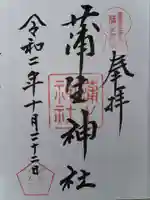 奉拝
蒲生神社
令和二年十月二十二日